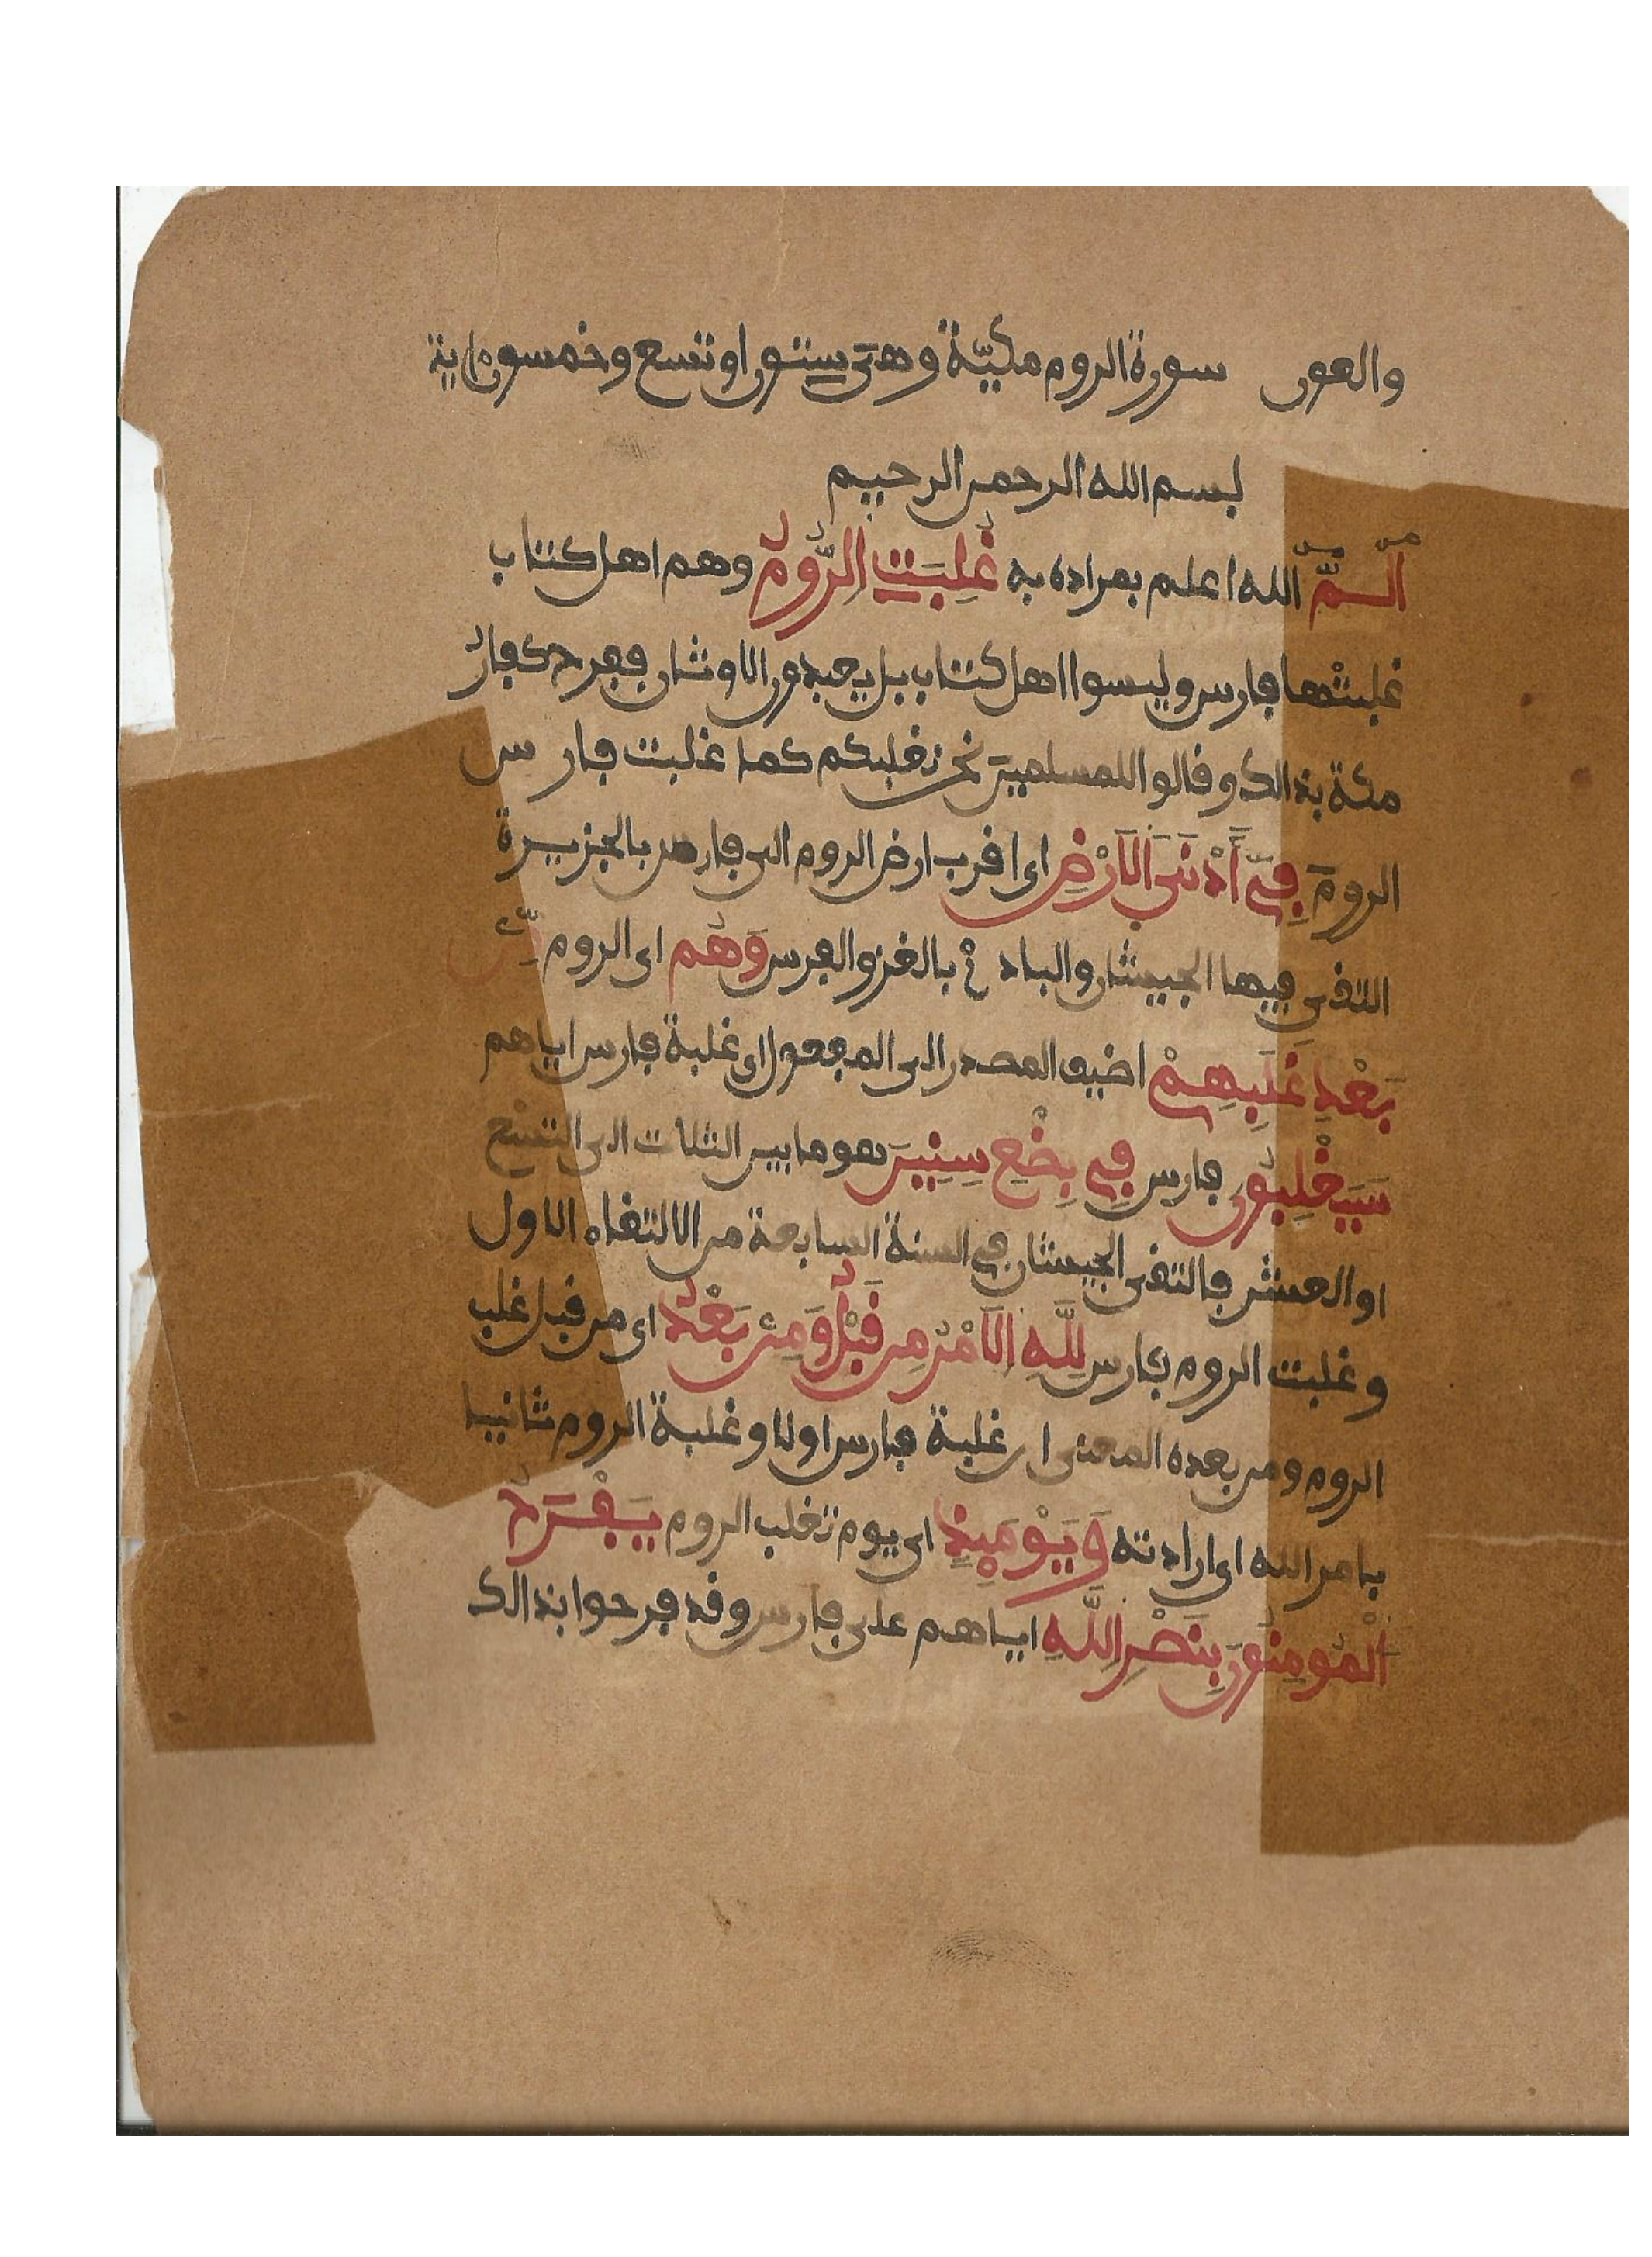 والعون سورة الروم مكيّة وهى ستون او تسع وخمسون اية
بسم الله الرحمن الرحيم
الٓمّٓ الله اعلم بمراده به غُلِبَتِ الرُّومُ وهم اهل كتاب
غلبتْها فارس وليسوا اهل كتاب بل يعبدون الاوثان ففرح كفارُ
مكة بذالك وقالوا للمسلمين نحن نغلبكم كما غلبت فارس
الرومَ فِےٓ أَدْنَى اَلَارْضِ اى اقرب ارض الروم الى فارس بالجزيرة
التقى فيها الجيشان والبادئ بالغزو الفرس وَهُم اى الروم مِّنۢ
بَعْدِ غَلَبِهِمْ اضيف المصدر الى المفعول اى غلبة فارس اياهم
سَيَغْلِبُونَ فارس فِے بِضْعِ سِنِينَ هو ما بين الثلاث الى التسع
او العشر فالتقى الجيشان فے السنة السابعة من الالتقاء الاول
وغلبت الروم فارس لِلَّهِ اِلَامْرُ مِن قَبْلُ وَمِنۢ بَعْدُ اى من قبل غلب
الروم ومن بعده المعنى ان غلبة فارس اولا وغلبة الروم ثانيا
بامر الله اى ارادته وَيَوْمَئِذٍ اى يوم تغلب الروم يَفْرَحُ
اَلْمُومِنُونَ بِنَصْرِ اِللَّهِ اياهم على فارس وقد فرحوا بذالك